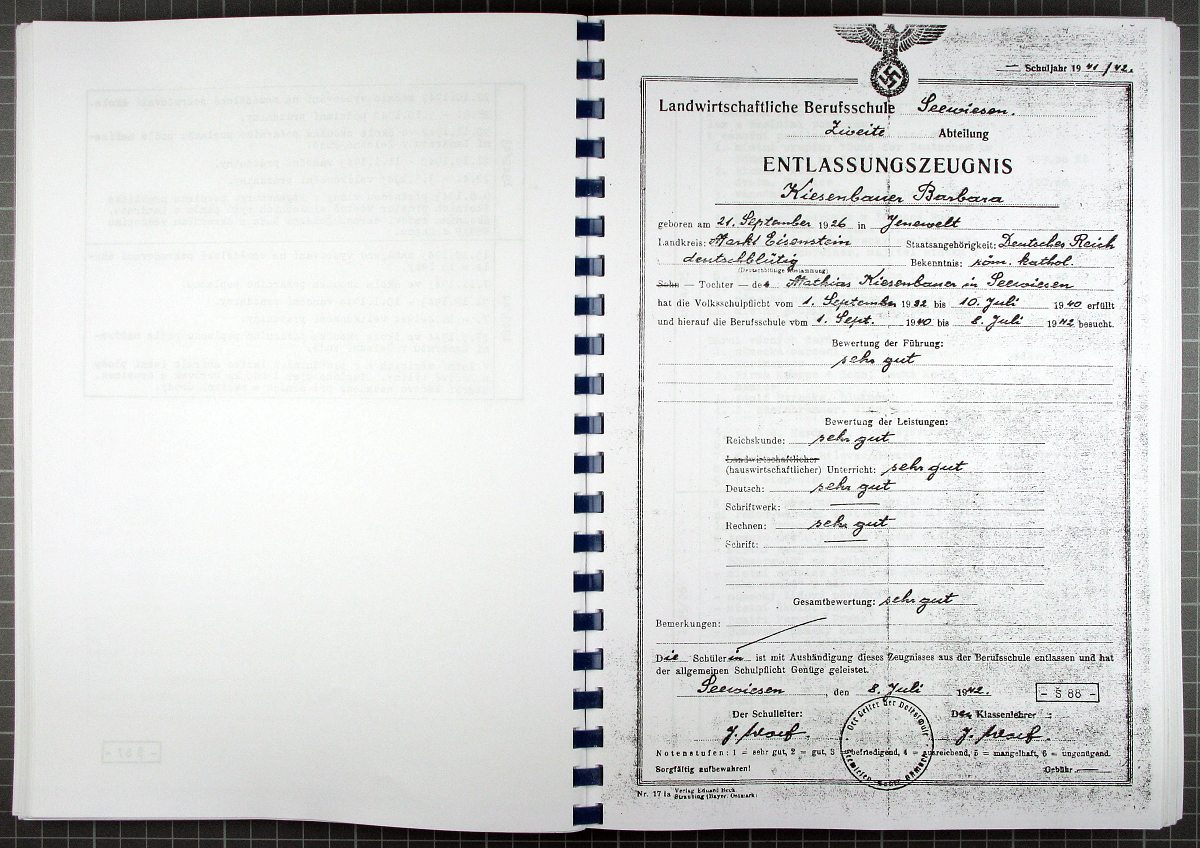 Schuljahr 1941/42.
Landwirtschaftliche Berufsschule Seewiesen.
Zweite Abteilung
ENTLASSUNGSZEUGNIS
Kiesenbauer Barbara
geboren am 21. September 1926 in Jenewelt
Landkreis: Markt Eisenstein Staatsangehörigkeit: Deutsches Reich
deutschblütig Bekenntnis: röm. kathol.
(Deutschblütige Abstammung)
Sohn — Tochter — des Mathias Kiesenbauer in Seewiesen
hat die Volksschulpflicht vom 1. September 1932 bis 10. Juli 1940 erfüllt
und hierauf die Berufsschule vom 1. Sept. 1940 bis 8. Juli 1942 besucht.
Bewertung der Führung:
sehr gut
Bewertung der Leistungen:
Reichskunde: sehr gut
Landwirtschaftlicher
(hauswirtschaftlicher) Unterricht: sehr gut
Deutsch: sehr gut
Schriftwerk: —
Rechnen: sehr gut
Schrift: —
Gesamtbewertung: sehr gut
Bemerkungen:
Die Schülerin ist mit Aushändigung dieses Zeugnisses aus der Berufsschule entlassen und hat
der allgemeinen Schulpflicht Genüge geleistet.
Seewiesen, den 8. Juli 1942.
- Š 88 -
Der Schulleiter: Der Klassenlehrer:
Der Leiter der Volksschule
Notenstufen: 1 = sehr gut, 2 = gut, 3 = befriedigend, 4 = ausreichend, 5 = mangelhaft, 6 = ungenügend.
Sorgfältig aufbewahren! Gebühr
Nr. 171a Verlag Eduard Beck
Straubing (Bayer. Ostmark)